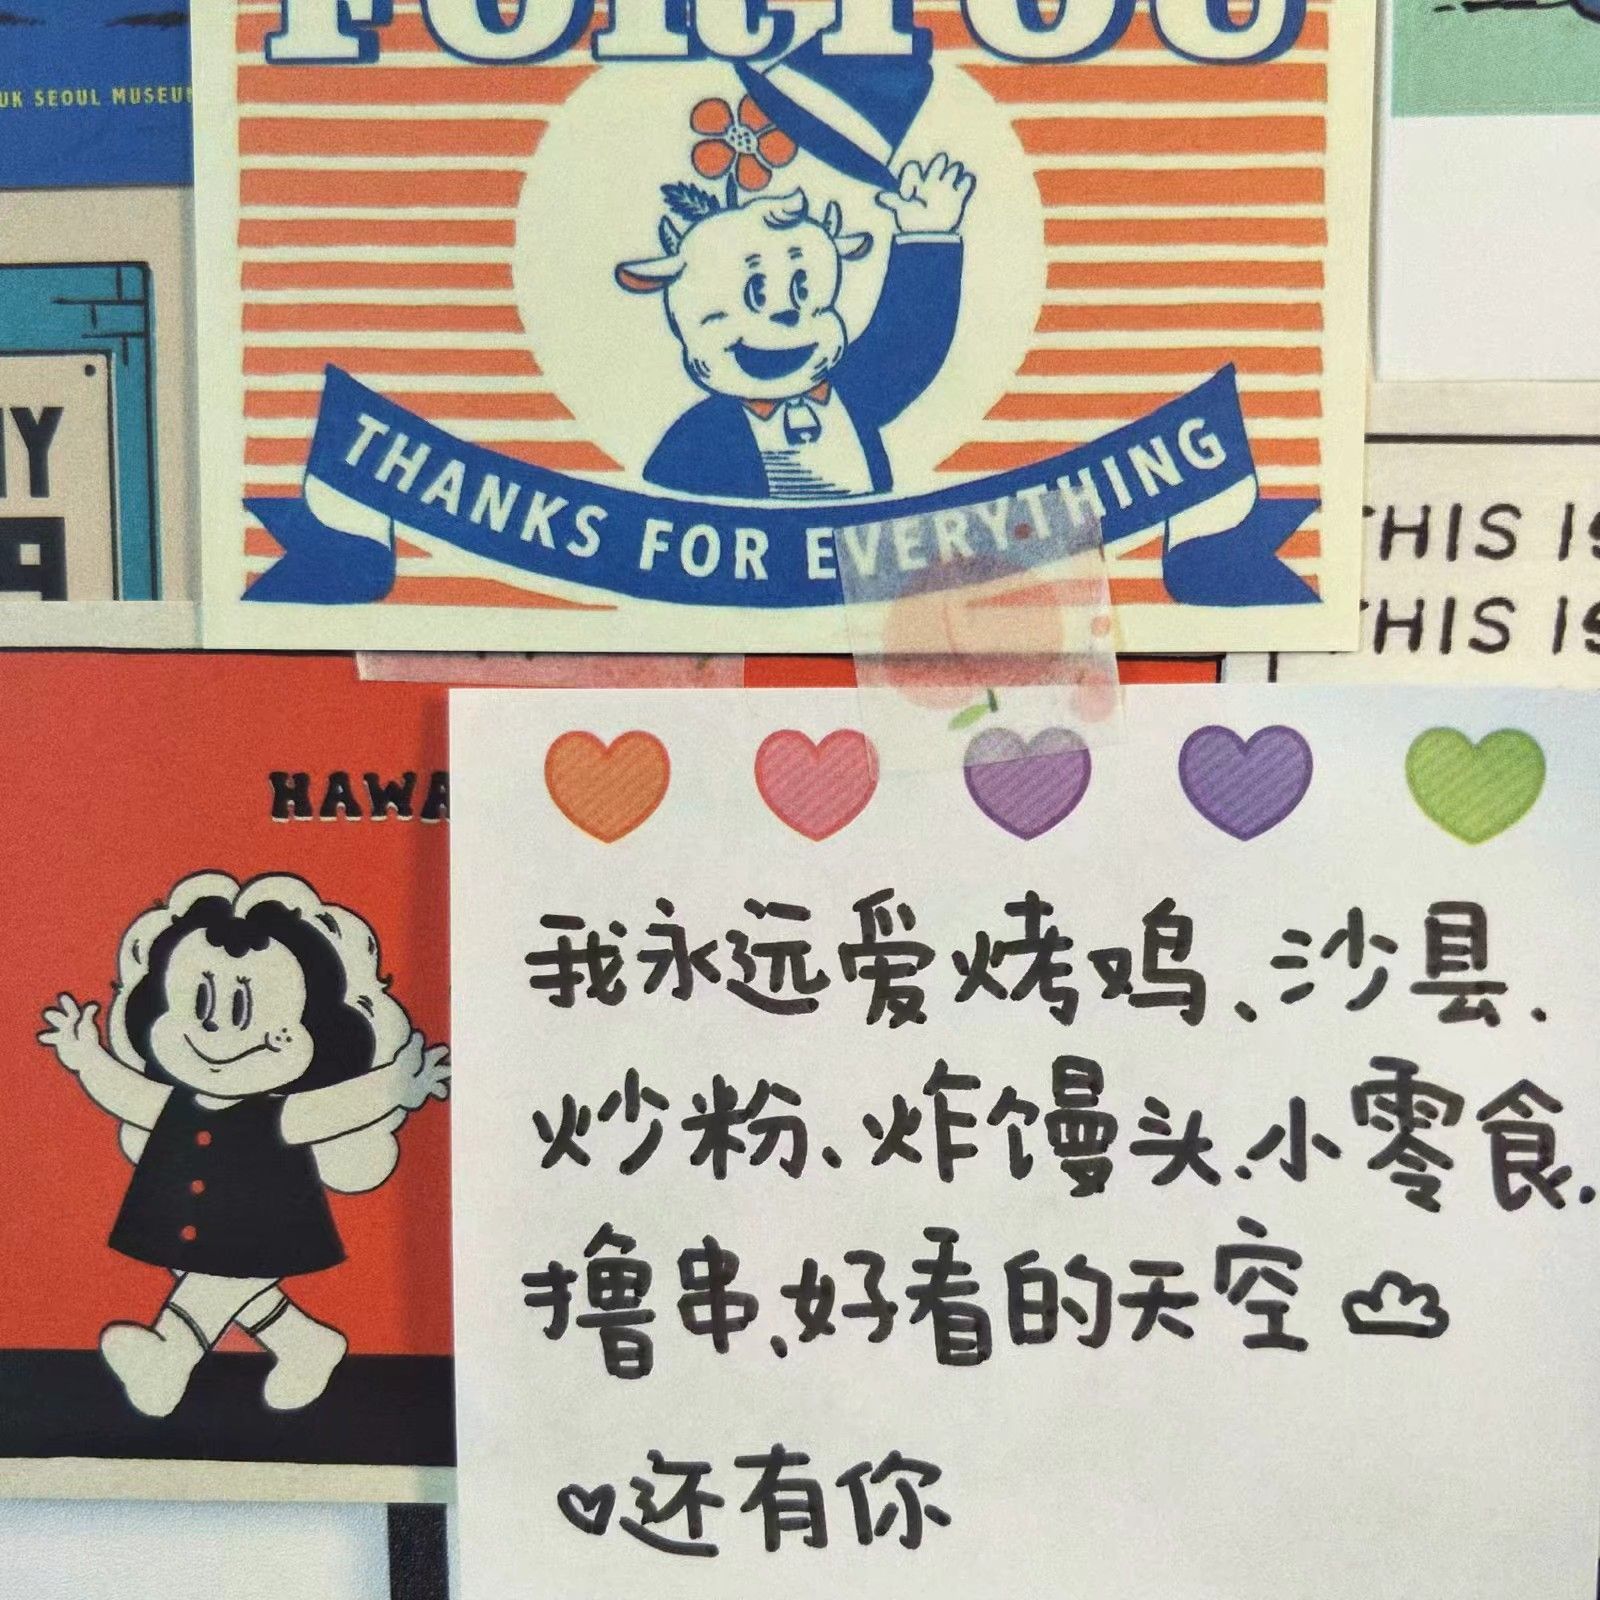 FOR YOU
UK SEOUL MUSEUM
THANKS FOR EVERYTHING
NY
THIS IS
THIS IS
HAWA
我永远爱烤鸡、沙县、
炒粉、炸馒头、小零食、
撸串、好看的天空
还有你